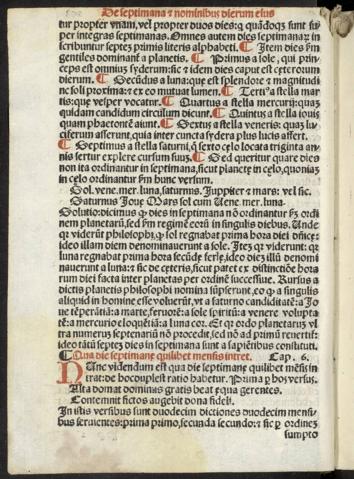 De septimana ⁊ nominibus dierum eius
tur propter vnam, vel propter duos dies: q̃ quãdoqȝ sunt su
per integras septimanas. Omnes autem dies septimanaꝝ in
scribuntur septeȝ primis literis alphabeti. ¶ Item dies fm̃
gentiles dominant̃ a planetis. ¶ Primus a sole, qui prin
ceps est omniũ syderum: sic ⁊ idem dies caput est ceterorum
dierum. ¶ Secũdus a luna: que est splendore ⁊ magnitudi
ne soli proxima: ⁊ ex eo mutuat lumen. ¶ Terti⁹ a stella mar
tis: que vesper vocatur. ¶ Quartus a stella mercurij: quaȝ
quidam candidum circulum dicunt. ¶ Quintus a stella iouis
quam phaetontẽ aiunt. ¶ Sextus a stella veneris: quaȝ lu
ciferum asserunt, quia inter cuncta sydera plus lucis affert.
¶ Septimus a stella saturni, q̃ sexto celo locata triginta an
nis fertur explere cursum suuȝ. ¶ Sed queritur quare dies
non ita ordinantur in septimana, sicut planete in celo, quoniaȝ
in celo ordinantur fm̃ hunc versum.
Sol. vene. mer. luna, saturnus. Juppiter ⁊ mars: vel sic.
Saturnus Joue Mars sol cum Uene. mer. luna.
Solutio: dicimus ꝙ dies in septimana nõ ordinantur fȝ ordi
nem planetarũ, sed fm̃ regimẽ eorũ in singulis diebus. Unde
qȝ viderũt philosophi, ꝙ sol regnabat prima hora diei dñice:
ideo illam diem denominauerunt a sole. Iteȝ qȝ viderunt: ꝙ
luna regnabat prima hora secũde ferie, ideo dieȝ illũ denomi
nauerunt a luna: ⁊ sic de ceteris, sicut patet ex distinctiõe hora
rum diei facta inter planetas per ordinẽ successiue. Rursus a
dictis planetis philosophi nomina sũpserunt, eo ꝙ a singulis
aliquid in homine esse voluerũt, vt a saturno candiditatẽ: a Jo
ue tẽperãtiã: a marte, feruorẽ: a sole spiritũ: a venere volupta
tẽ: a mercurio eloquẽtiã: a luna cor. Et qȝ ordo planetaruȝ vl
tra numerus septenariũ nõ procedit, sed nõ ad primũ reuertit̃:
ideo totũ septeȝ dies in septimana sunt a sapiẽtibus constituti.
¶ Qua die septimane quilibet mensis intret. Cap. 6.
Nunc videndum est qua die septimane quilibet mẽsis in
trat: de hoc duplex ratio habetur. Prima ꝑ hos versus.
Alta domat dominus gratis beat ꝑ qua gerentes.
Contemnit fictos augebit dona fideli.
In istis versibus sunt duodecim dictiones duodecim mensi
bus seruientes: prima primo, secunda secundo: ⁊ sic ꝑ ordineȝ
sumpto